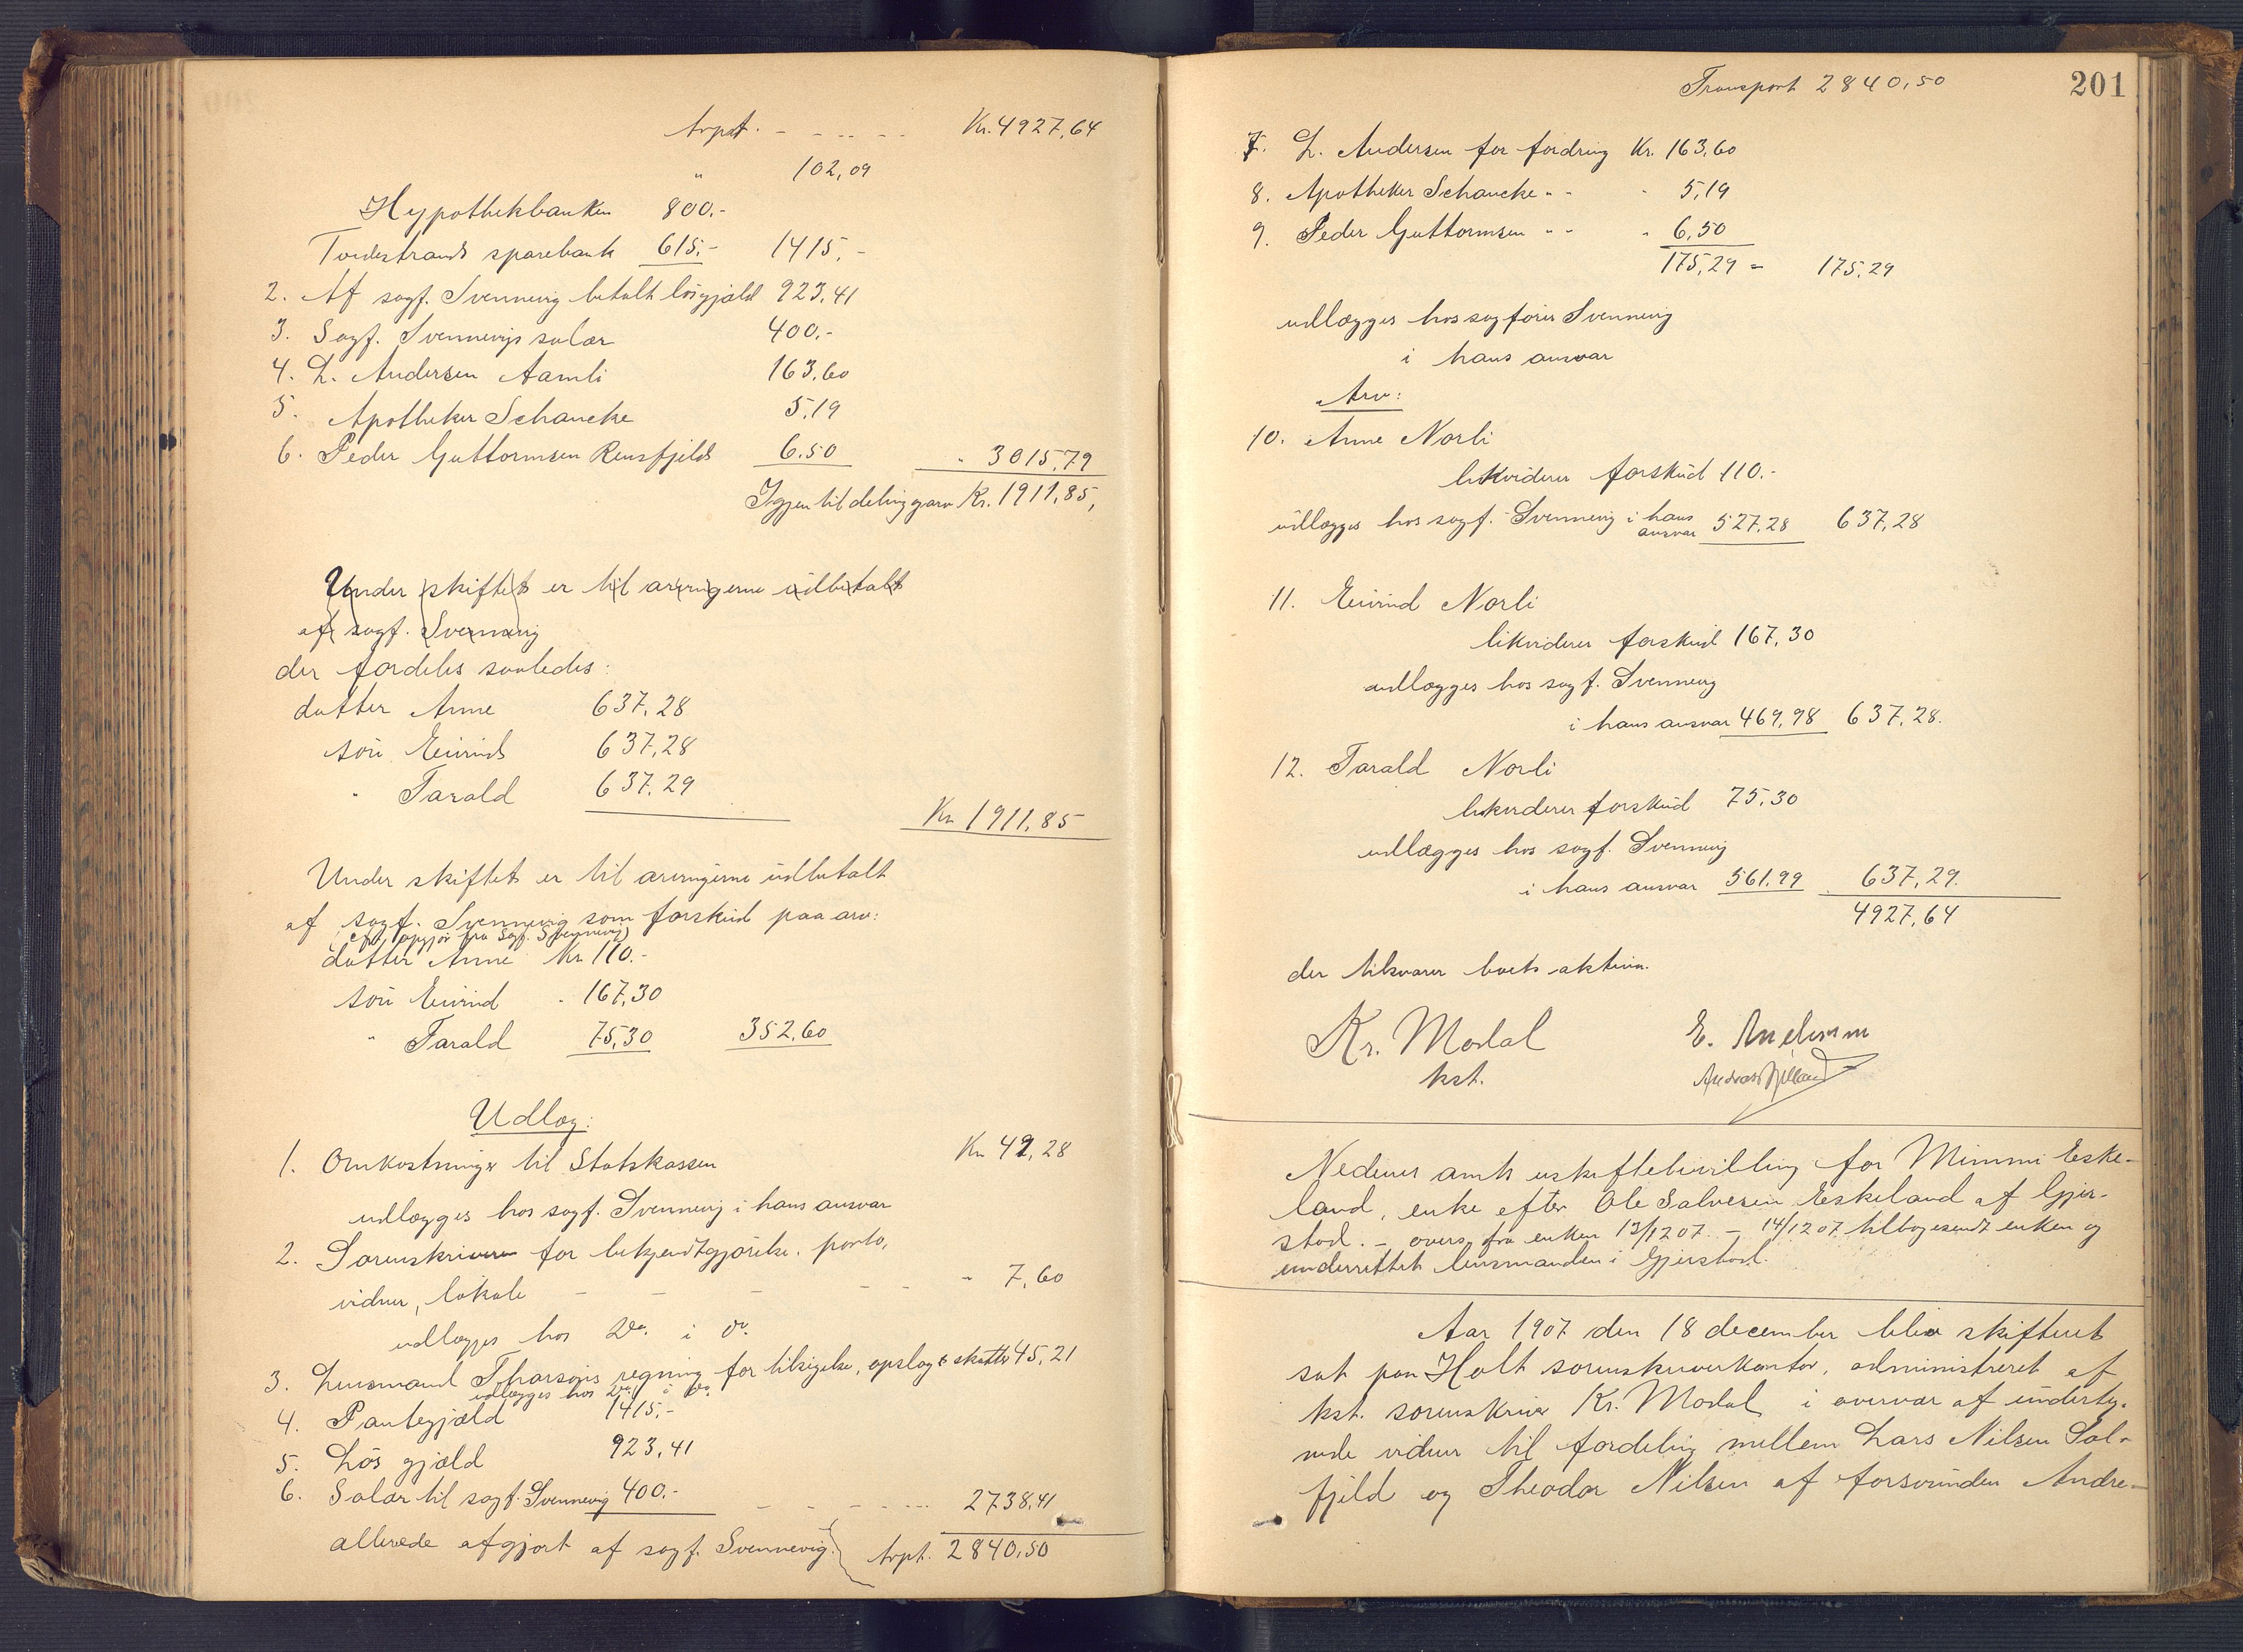 trpt. - - - - - Kr. 4927,64
" 102,09
Hypothekbanken 800.-
Tvedestrands sparebank 615.- 1415,-
2. Af sagf. Svennevig betalt løsgjæld 923,41
3. Sagf. Svennevigs salær 400.-
4. L. Andersen Aamli 163,60
5. Apotheker Schancke 5,19
6. Peder Guttormsen Rensfjeld 6.50 " 3015,79
Igjen til deling garv Kr. 1911,85,
Under skiftet er til arvingerne udbetalt
af sagf. Svennevig
der fordeles saaledes:
datter Anne 637,28
søn Eivind 637,28
" Tarald 637,29
Kr 1911,85
Under skiftet er til arvingerne udbetalt
af sagf. Svennevig som forskud paa arv:
(eft. opgjør fra Sagf. Svennevig)
datter Anne Kr 110.-
søn Eivind - 167,30
" Tarald 75,30 352,60
Udlæg:
1. Omkostninger til Statskassen Kr 49,28
udlægges hos sagf. Svennevig i hans ansvar
2. Sorenskriveren for bekjendtgjørelse, porto,
vidner, lokale - - - - - " 7,60
udlægges hos Do. i do.
3. Lensmand Tharsons regning for tilsigelse, opslag & skatter 45,21
udlægges hos do. i do.
4. Pantegjæld 1415,-
5. Løs gjæld 923,41
6. Salær til sagf. Svennevig 400.- - - - - 2738,41
allerede afgjort af sagf. Svennevig. trpt. 2840,50
Transport 2840,50
201
7. L. Andersen for fordring Kr. 163,60
8. Apotheker Schancke " " " 5,19
9. Peder Guttormsen " " " 6,50
175,29 = 175,29
udlægges hos sagfører Svennevig
i hans ansvar
Arv:
10. Anne Norli
likviderer forskud 110.-
udlægges hos sagf. Svennevig i hans ansvar 527,28 637,28
11. Eivind Norli
likviderer forskud 167,30
udlægges hos sagf. Svennevig
i hans ansvar 469,98 637,28.
12. Tarald Norli
likviderer forskud 75,30
udlægges hos sagf. Svennevig
i hans ansvar 561,99 637,29.
4927,64
der tilsvarer boets aktiva.
Kr. Modal E. Andersen
kst.
Nedenes amts uskiftebevilling for Mimmi Eske-
land, enke efter Ole Salvesen Eskeland af Gjer-
stad. - overs. fra enken 13/12 07. - 14/12 07 tilbagesendt enken og
underrettet lensmanden i Gjerstad.
Aar 1907 den 18 december blev skifteret
sat paa Holt sorenskriverkontor, administreret af
kst. sorenskriver Kr. Modal i overvær af underteg-
nede vidner til fordeling mellem Lars Nilsen Sol-
fjeld og Theodor Nilsen af forsvunden Andre-